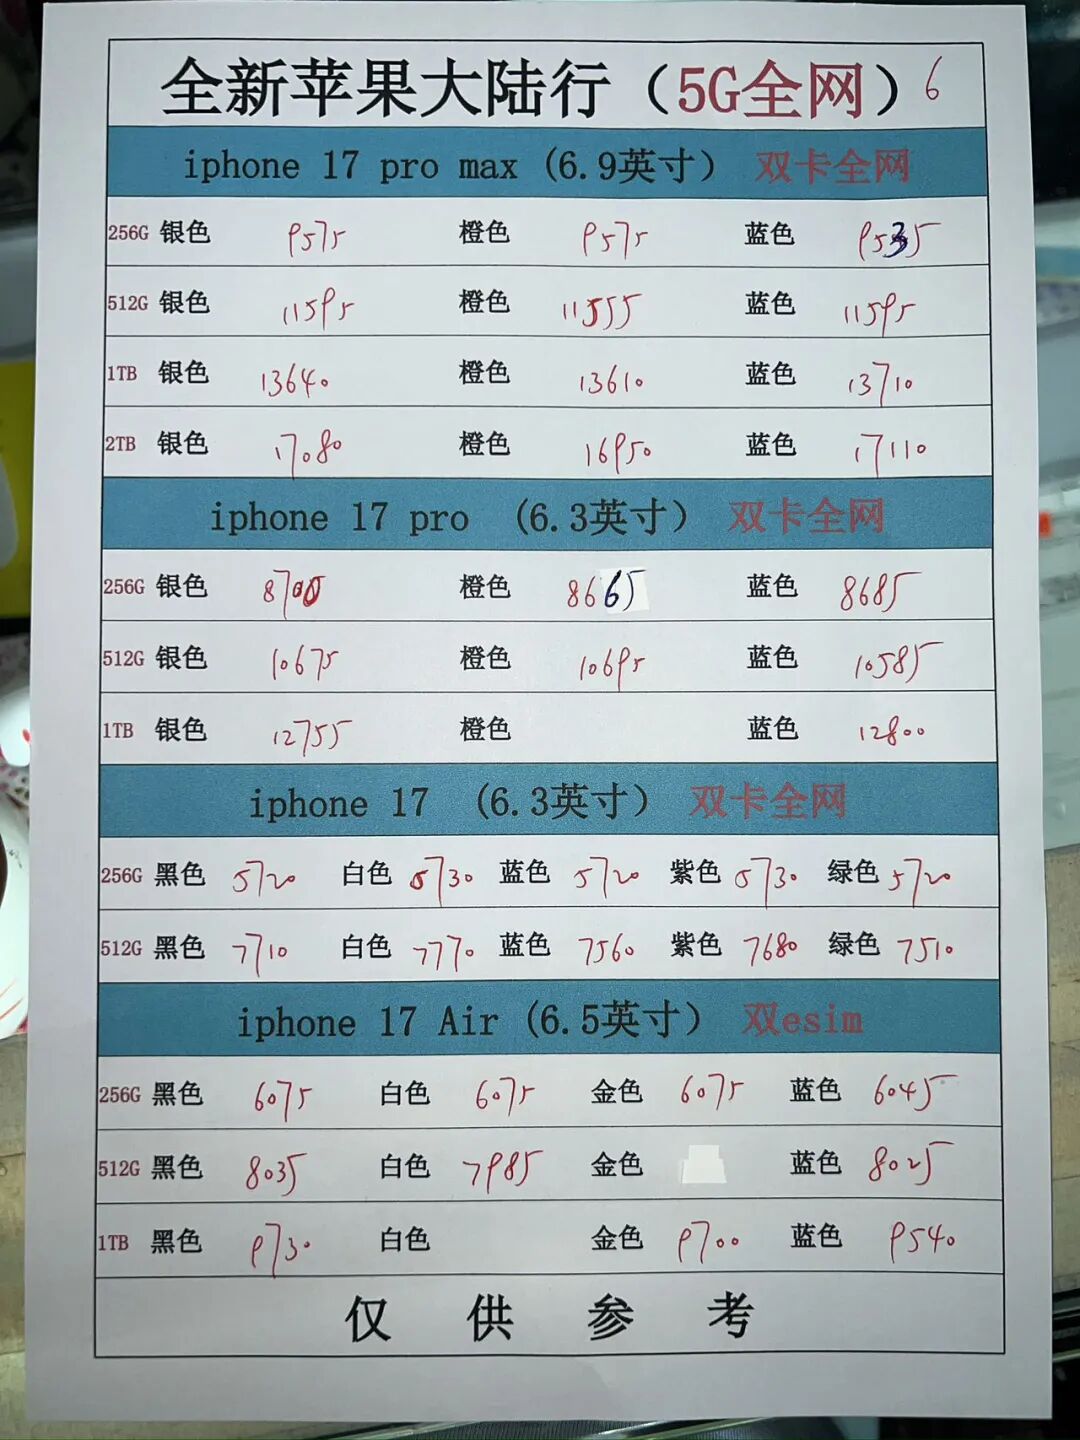 全新苹果大陆行（5G全网）6
iphone 17 pro max (6.9英寸） 双卡全网
256G 银色 9575 橙色 9575 蓝色 9535
512G 银色 11595 橙色 11555 蓝色 11595
1TB 银色 13640 橙色 13610 蓝色 13710
2TB 银色 17080 橙色 16950 蓝色 17110
iphone 17 pro (6.3英寸） 双卡全网
256G 银色 8700 橙色 8665 蓝色 8685
512G 银色 10675 橙色 10695 蓝色 10585
1TB 银色 12755 橙色 蓝色 12800
iphone 17 (6.3英寸） 双卡全网
256G 黑色 5720 白色 5730 蓝色 5720 紫色 5730 绿色 5720
512G 黑色 7710 白色 7770 蓝色 7560 紫色 7680 绿色 7510
iphone 17 Air (6.5英寸） 双esim
256G 黑色 6075 白色 6075 金色 6075 蓝色 6045
512G 黑色 8035 白色 7985 金色 蓝色 8025
1TB 黑色 9730 白色 金色 9700 蓝色 9540
仅供参考